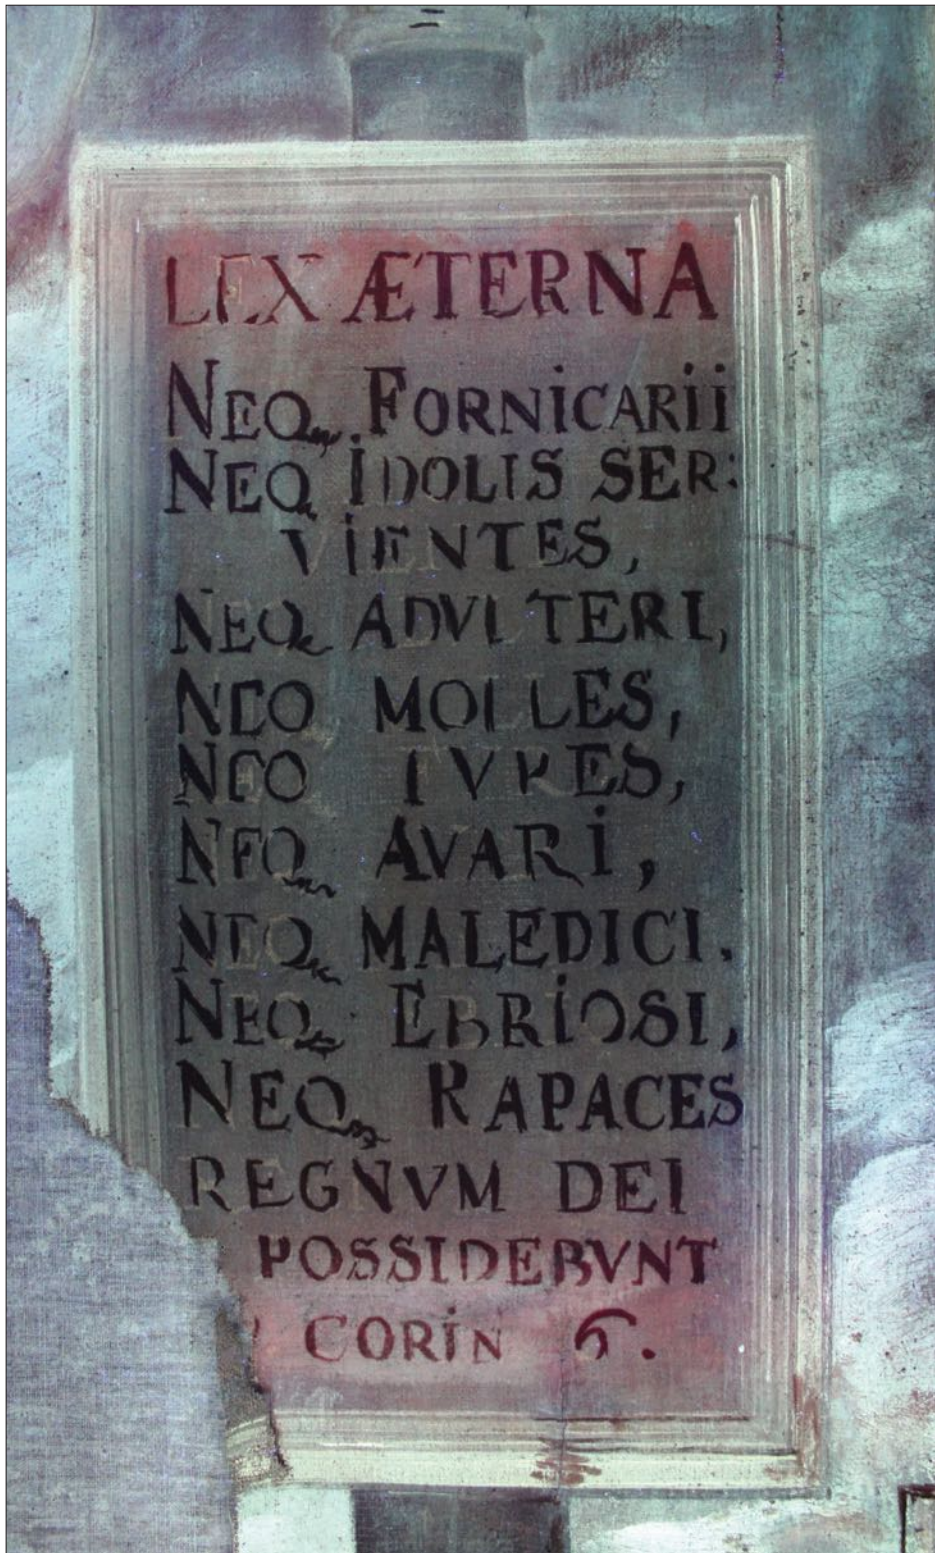 LEX ÆTERNA
NEQ, FORNiCARii
NEQ, IDOLIS SER:
ViENTES,
NEQ, ADVLTERI,
NEQ MOLLES,
NEQ FVRES,
NEQ, AVARi,
NEQ, MALEDICI.
NEQ, EBRiOSI,
NEQ, RAPACES
REGNVM DEI
POSSIDEBVNT
I CORiN 6.